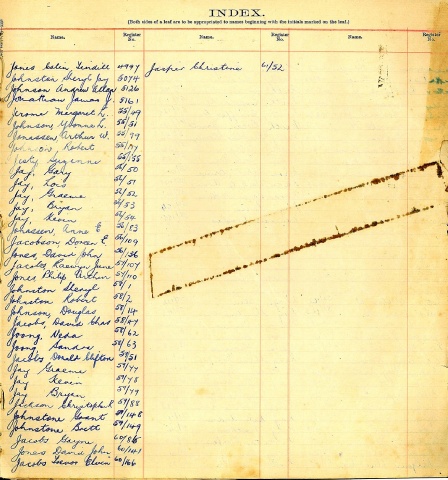 INDEX.
(Both sides of a leaf are to be appropriated to names beginning with the initials marked on the leaf.)
Name. Register No. Name. Register No. Name. Register No.
Jones Colin 4997 Jasper Christine 61/52
Johnston Sheryl Jay 5074
Johnson Andrew Allan 5126
Jonathan James J. 5161
Jerome Margaret L. 55/49
Johnson, Yvonne L. 55/51
Jonassen Arthur W. 55/79
Johnson, Robert
Jesty Suzanne 55/155
Jay, Gary 56/50
Jay, Lois 56/51
Jay, Graeme 56/52
Jay, Bryan 56/53
Jay, Kevin 56/54
Johnssen, Anne E 56/83
Jacobson, Doreen E. 56/109
Jones, David John 56/156
Jacobs Raewyn June 57/107
Jones Philip Arthur 57/110
Johnston Sheryl 58/1
Johnston Robert 58/2
Johnson, Douglas 58/14
Jacobs, David Chas 58/47
Joong, Neda 58/62
Joong Sandra 58/63
Jacobs Donald Clifton 5951
Jay Graeme 59/77
Jay Kevin 59/78
Jay Bryan 59/79
Jackson Christopher R 59/88
Johnstone Grant 59/148
Johnstone Brett 59/149
Jacobs Gayne 60/86
Jones David John 60/141
Jacobs Trevor Elvin 60/166